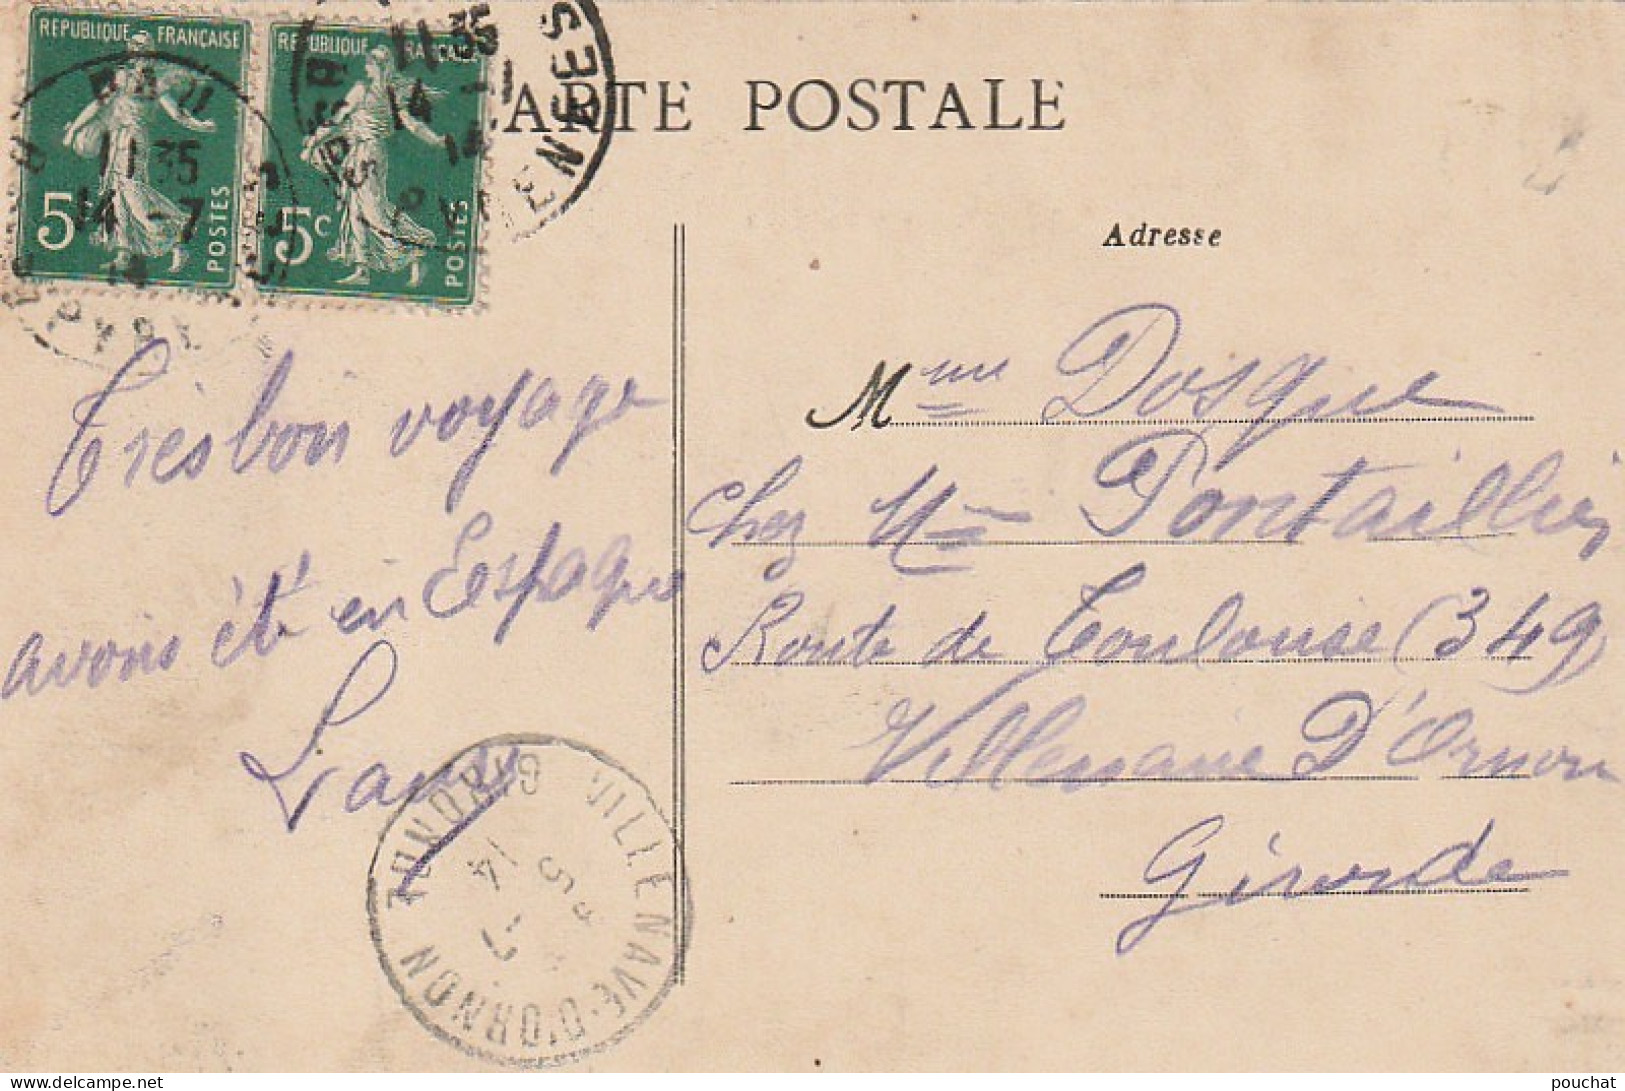 RÉPUBLIQUE FRANÇAISE
5c
POSTES
RÉPUBLIQUE FRANÇAISE
5c
POSTES
PAU
11 35
14 -7
14
11.35
14
14
CARTE POSTALE
Adresse
Très bon voyage
avons été en Espagne
Mme Dosque
chez Mme Pontaillier
Route de Toulouse (349)
Villenave D'Ornon
Gironde
VILLENAVE-D'ORNON GIRONDE
14
-7
pouchat